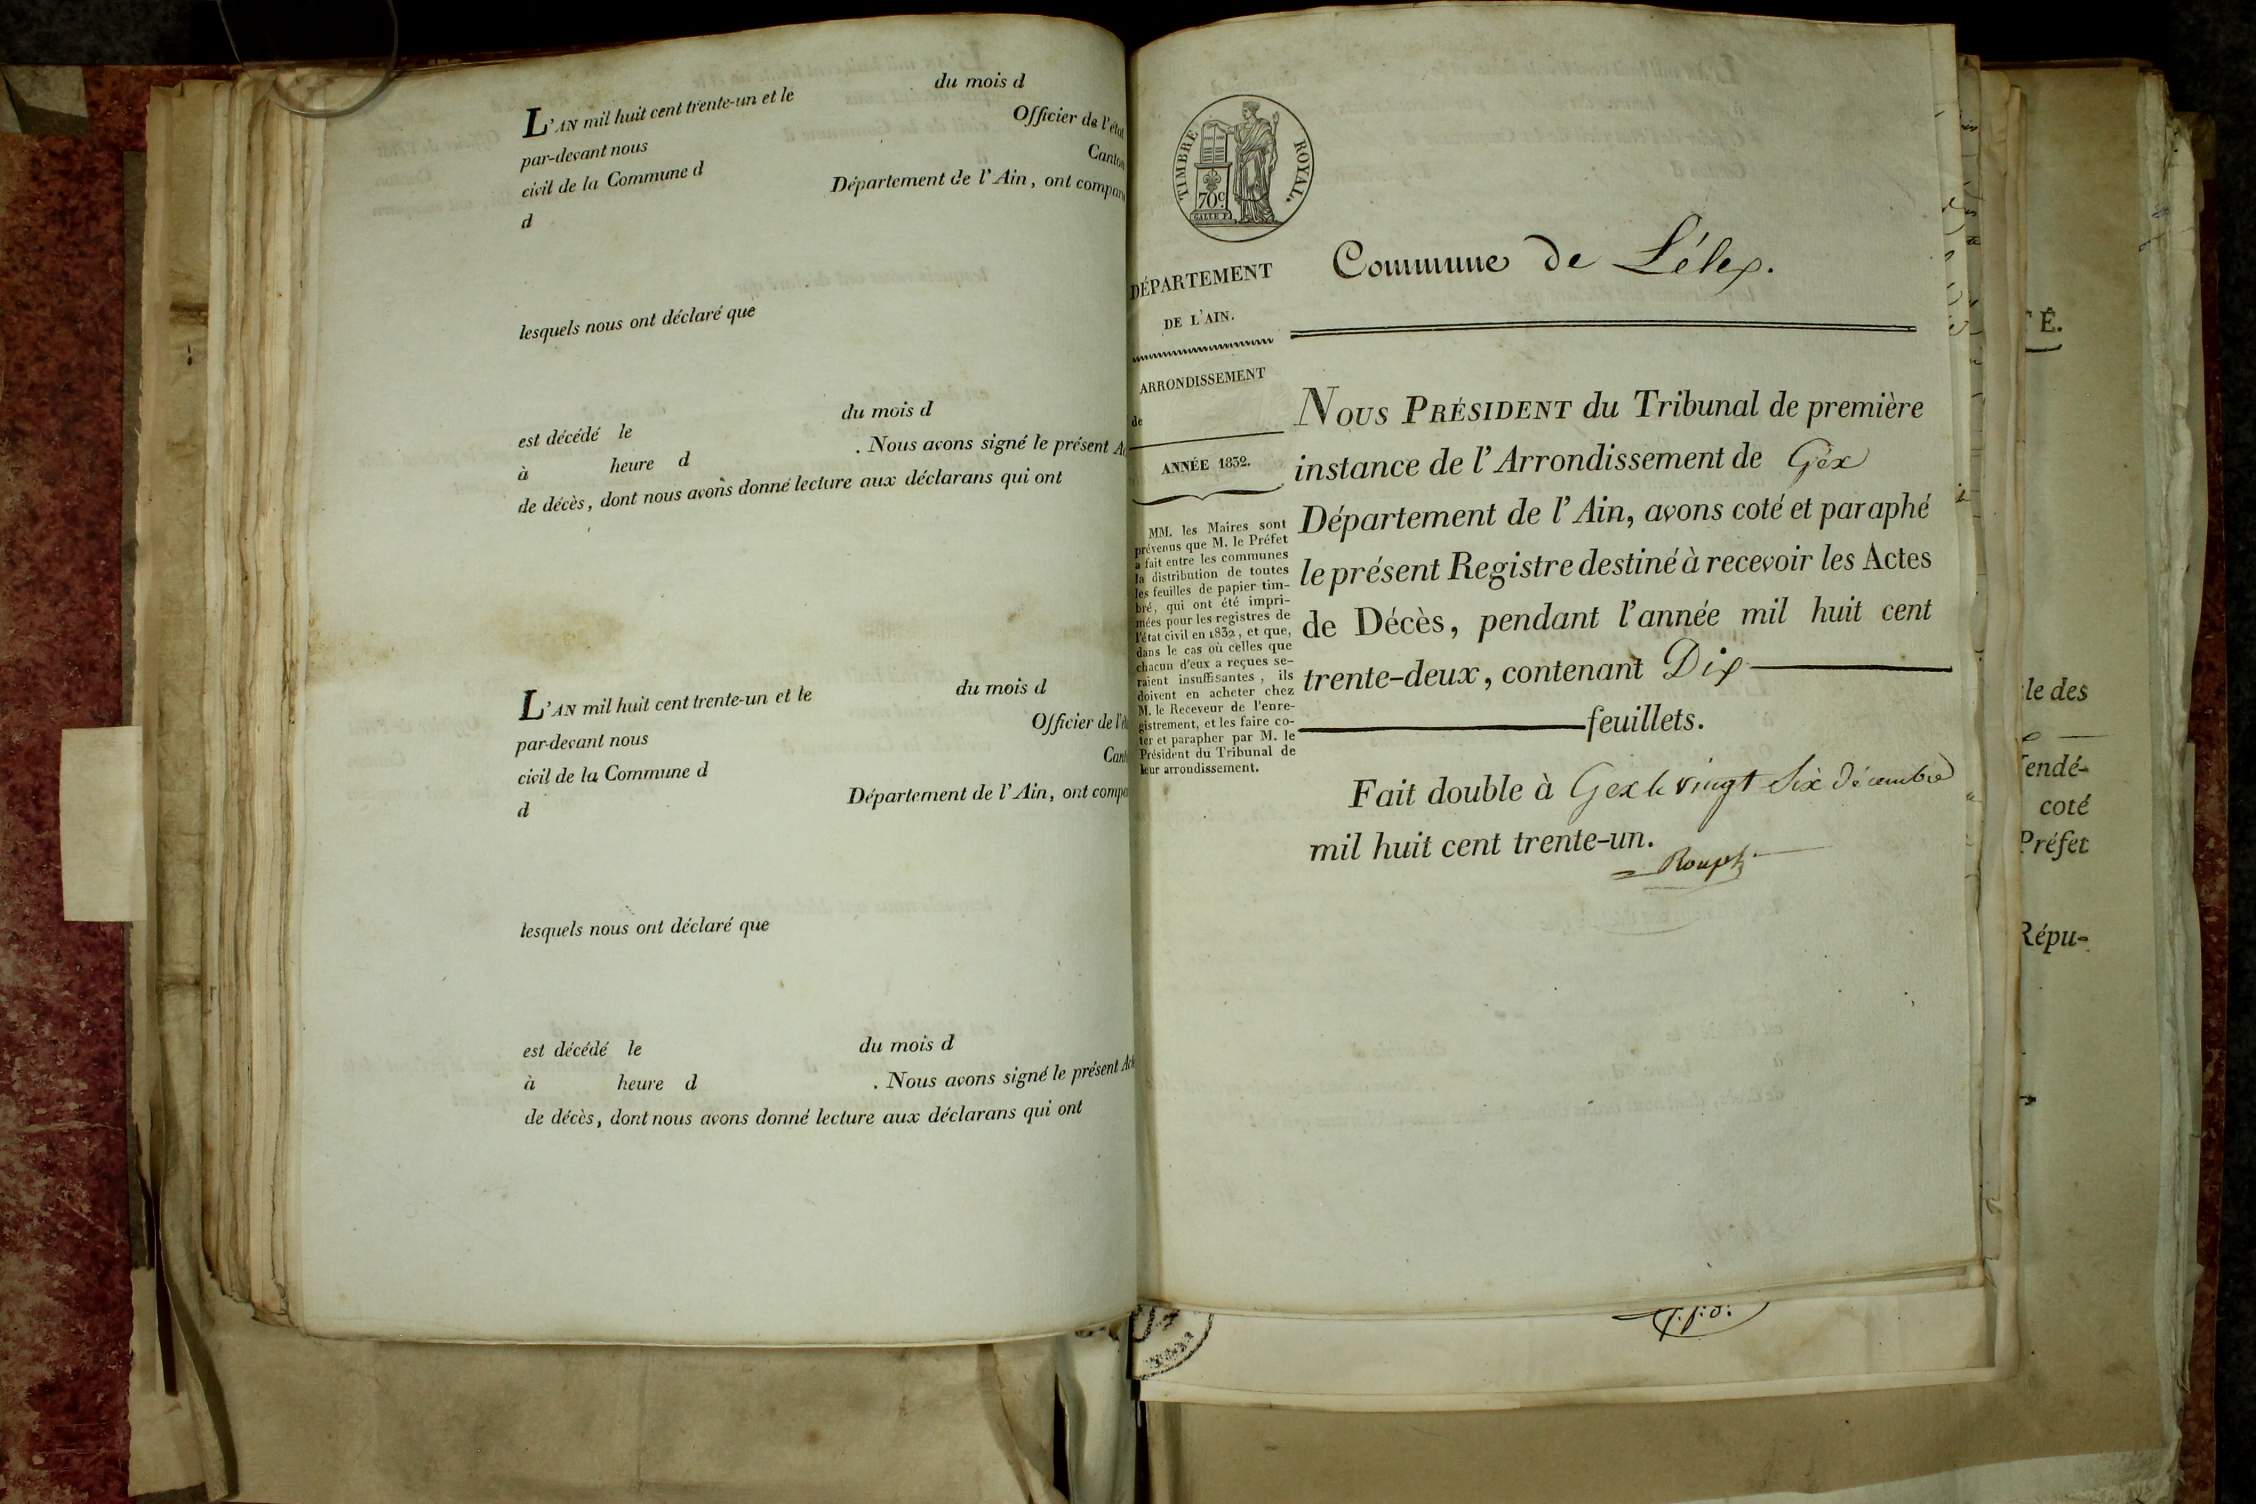 L'AN mil huit cent trente-un et le du mois d
par-devant nous Officier de l'état
civil de la Commune d Canton
d Département de l'Ain, ont comparu
lesquels nous ont déclaré que
est décédé le du mois d
à heure d . Nous avons signé le présent Ac
de décès, dont nous avons donné lecture aux déclarans qui ont
L'AN mil huit cent trente-un et le du mois d
par-devant nous Officier de l'éta
civil de la Commune d Cant
d Département de l'Ain, ont compa
lesquels nous ont déclaré que
est décédé le du mois d
à heure d . Nous avons signé le présent Acte
de décès, dont nous avons donné lecture aux déclarans qui ont
TIMBRE ROYAL.
70c
GALLE F.
DÉPARTEMENT
DE L'AIN.
ARRONDISSEMENT
de
ANNÉE 1832.
MM. les Maires sont
prévenus que M. le Préfet
a fait entre les communes
la distribution de toutes
les feuilles de papier tim-
bré, qui ont été impri-
mées pour les registres de
l'état civil en 1832, et que,
dans le cas où celles que
chacun d'eux a reçues se-
raient insuffisantes, ils
doivent en acheter chez
M. le Receveur de l'enre-
gistrement, et les faire co-
ter et parapher par M. le
Président du Tribunal de
leur arrondissement.
Commune de Lélex.
NOUS PRÉSIDENT du Tribunal de première
instance de l'Arrondissement de Gex
Département de l'Ain, avons coté et paraphé
le présent Registre destiné à recevoir les Actes
de Décès, pendant l'année mil huit cent
trente-deux, contenant Dix
feuillets.
Fait double à Gex le vingt Six décembre
mil huit cent trente-un.
TÉ.
le des
endé-
coté
Préfet
Répu-